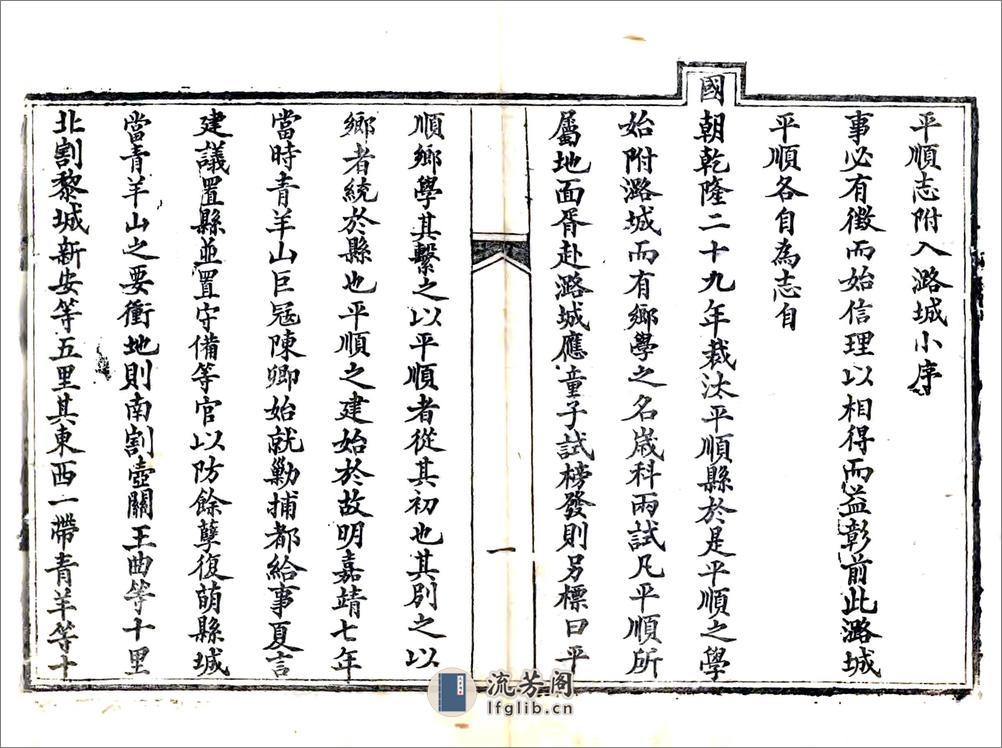 平順志附入潞城小序
事必有徵而始信理以相得而益彰前此潞城
平順各自為志自
國朝乾隆二十九年裁汰平順縣於是平順之學
始附潞城而有鄉學之名歲科兩試凡平順所
屬地面胥赴潞城應童子試榜發則另標曰平
一
順鄉學其繫之以平順者從其初也其別之以
鄉者統於縣也平順之建始於故明嘉靖七年
當時青羊山巨冦陳卿始就勦捕都給事夏言
建議置縣並置守備等官以防餘孽復萌縣城
當青羊山之要衝地則南割壺關王曲等十里
北割黎城新安等五里其東西一帶青羊等十
流芳閣
lfglib.cn